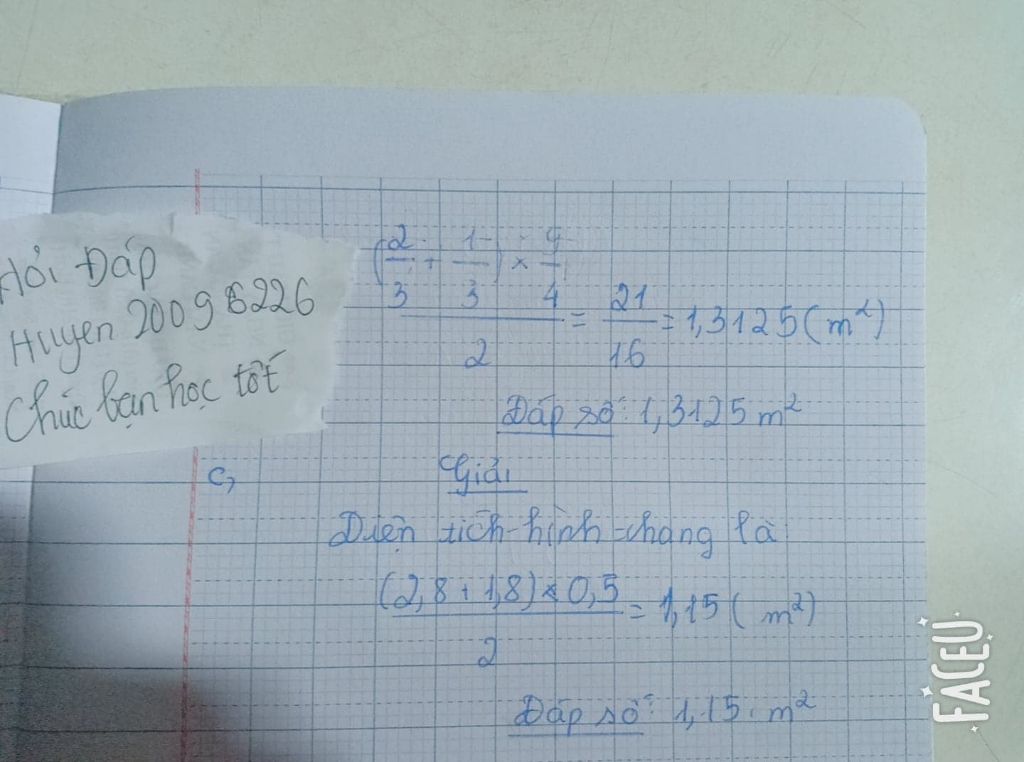 Hỏi Đáp
Huyen
Chúc bạn học tốt
(2/3 + 1/3) × 9/4
2
= 21/16 = 1,3125 (m²)
Đáp số: 1,3125 m²
c,
Giải
Diện tích hình thang là
(2,8 + 1,8) × 0,5
2
= 1,15 (m²)
Đáp số: 1,15 m²
FACEU